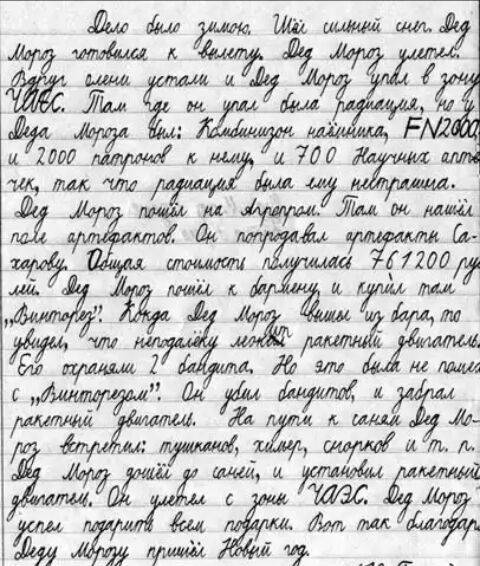 Дело было зимою. Шёл сильный снег. Дед
Мороз готовился к вылету. Дед Мороз улетел.
Вдруг олени устали и Дед Мороз упал в зону
ЧАЕС. Там где он упал была радиация, но у
Деда Мороза был: Комбинизон наёмника, FN2000,
и 2000 патронов к нему, и 700 Научных апте
чек, так что радиация была ему нестрашна.
Дед Мороз пошёл на Агропром. Там он нашёл
поле артефактов. Он попродавал артефакты Са-
харову. Общая стоимость получилась 761200 руб
лей. Дед Мороз пошёл к бармену, и купил там
„Винторез". Когда Дед Мороз вышы из бара, то
увидел, что неподалёку лежит ракетный двигатель.
Его охраняли 2 бандита. Но это была не помех
с „Винторезом". Он убил бандитов, и забрал
ракетный двигатель. На пути к саням Дед Мо-
роз встретил: тушканов, химер, снорков и т. п.
Дед Мороз дошёл до саней, и установил ракетный
двигатель. Он улетел с зоны ЧАЭС. Дед Мороз
успел подарить всем подарки. Вот так благодар
Деду Морозу пришёл Новый год.